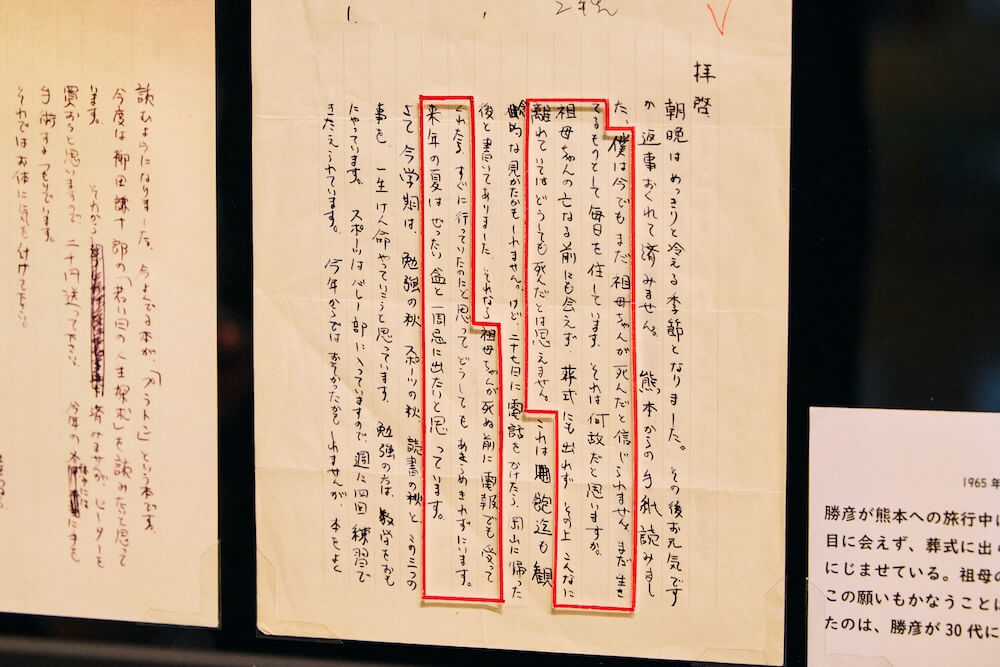 1.
拝啓
朝晩はめっきりと冷える季節となりました。その後お元気です
か 返事おくれて済みません。熊本からの手紙読みまし
た、僕は今でもまだ祖母ちゃんが死んだと信じられません。まだ生き
てるものとして毎日を任しています。それは何故だと思いますか。
祖母ちゃんの亡なる前にも会えず、葬式にも出れず その上こんなに
離れていてはどうしても死んだとは思えません。これは飽迄も観
的な見かたかもしれません。けど、二十七日に電話をかけたら、岡山に帰った
後と書いてありました、それなら祖母ちゃんが死ぬ前に電報でも受って
くれたら、すぐに行っていたのにと思ってどうしてもあきらめきれずにいます。
来年の夏はぜったい盆と一周忌に出たいと思っています。
さて今学期は、勉強の秋 スポーツの秋、読書の秋と、この三つの
事を一生けん命やっていこうと思っています、勉強の方は、数学をおも
にやっています。スポーツはバレー部に入っていますので、週に四回練習で
きたえられています。今年からではおそかったかもしれませんが、本をよく
読むようになりました、今よんでる本が、「プラトン」という本です。
今度は柳田謙十郎の「若い日の人生探求」を読みたいと思って
います。それから 済みませんが、ヒーターを
買おうと思いますので、二千円送って下さい。今年の
手術するつもりです。
それではお体に気を付けて下さい。
1965年
勝彦が熊本への旅行中に
目に会えず、葬式に出
にじませている。祖母の
この願いもかなうことに
たのは、勝彦が30代に